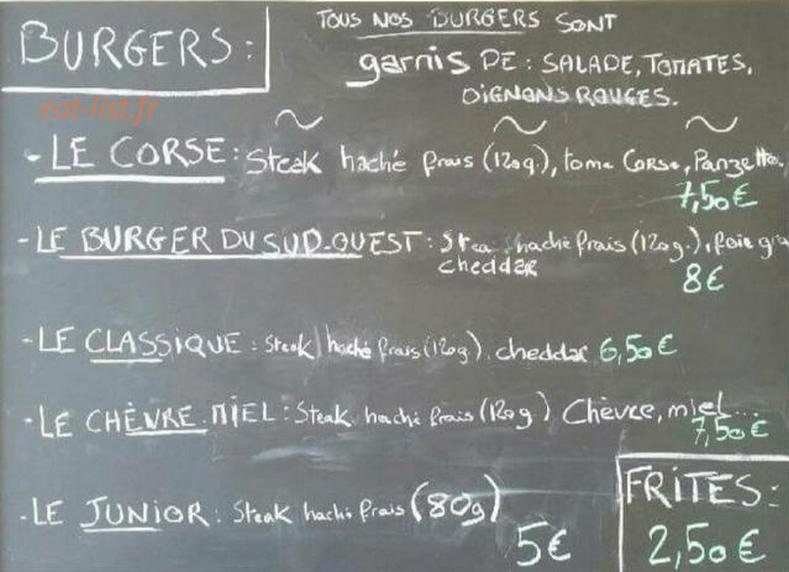 BURGERS:
TOUS NOS BURGERS SONT
garnis DE: SALADE, TOMATES,
OIGNONS ROUGES.
eat-list.fr
- LE CORSE: Steak haché frais (120g.), tome Corse, Panzetta.
7,50€
- LE BURGER DU SUD-OUEST: Steak haché frais (120g.), foie gra
cheddar
8€
- LE CLASSIQUE: Steak haché frais (120g), cheddar 6,50€
- LE CHÈVRE-MIEL: Steak haché frais (120g) Chèvre, miel...
7,50€
- LE JUNIOR: Steak haché frais (80g)
5€
FRITES:
2,50€